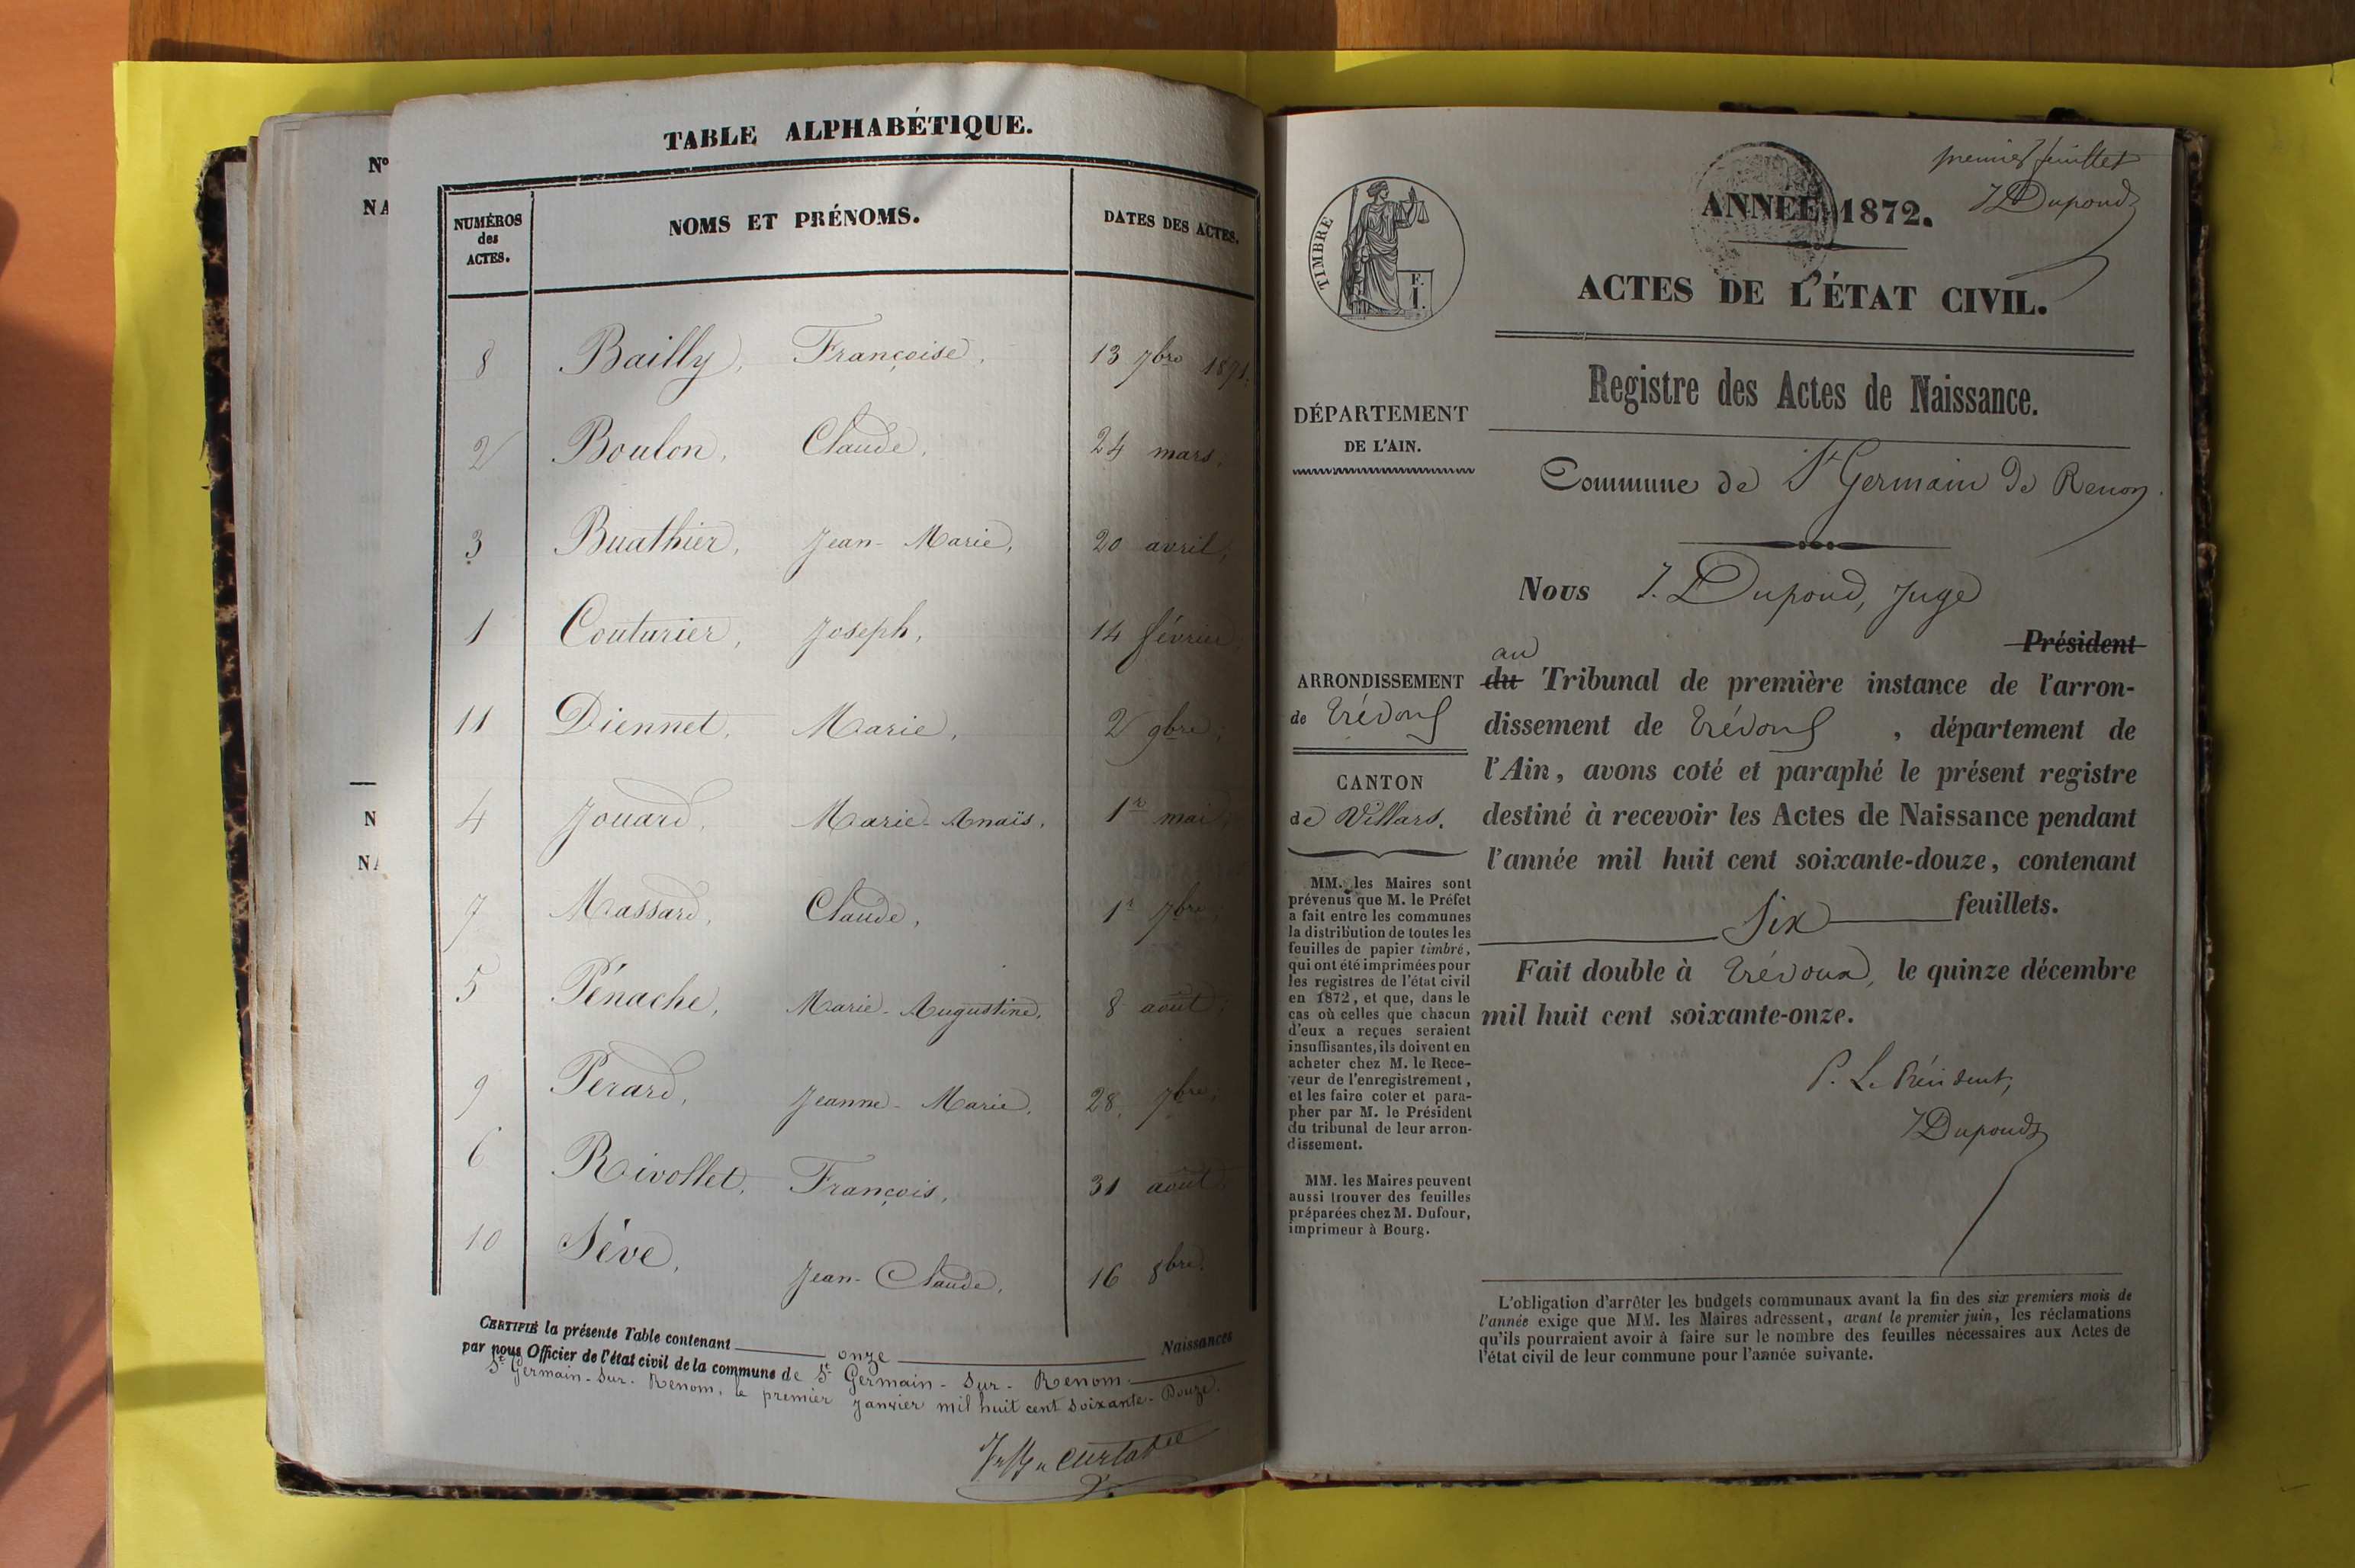 TABLE ALPHABÉTIQUE.
NUMÉROS des ACTES. NOMS ET PRÉNOMS. DATES DES ACTES.
8 Bailly, Françoise, 13 7bre 1871;
2 Boulon, Claude, 24 mars;
3 Buathier, Jean-Marie, 20 avril;
1 Couturier, Joseph, 14 février
11 Diennet, Marie, 2 9bre;
4 Jouard, Marie-Anaïs, 1r mai;
7 Massard, Claude, 1r 7bre;
5 Pénache, Marie-Augustine, 8 août;
9 Perard, Jeanne-Marie, 28 7bre;
6 Rivollet, François, 31 août;
10 Sève, Jean-Claude, 16 8bre.
CERTIFIÉ la présente Table contenant onze Naissances
par nous Officier de l'état civil de la commune de St Germain-sur-Renom.
St Germain-sur-Renom, le premier janvier mil huit cent soixante-Douze.
N°
NA
N
NA
premier feuillet
J Dupond
TIMBRE
F.
I.
ANNÉE 1872.
ACTES DE L'ÉTAT CIVIL.
Registre des Actes de Naissance.
DÉPARTEMENT
DE L'AIN.
Commune de St Germain de Renon.
Nous J. Dupond, Juge
Président
au
du Tribunal de première instance de l'arron-
dissement de Trévoux, département de
l'Ain, avons coté et paraphé le présent registre
destiné à recevoir les Actes de Naissance pendant
l'année mil huit cent soixante-douze, contenant
Six feuillets.
Fait double à Trévoux, le quinze décembre
mil huit cent soixante-onze.
P. Le Président,
J Dupond
ARRONDISSEMENT
de Trévoux
CANTON
de Villars.
MM. les Maires sont
prévenus que M. le Préfet
a fait entre les communes
la distribution de toutes les
feuilles de papier timbré,
qui ont été imprimées pour
les registres de l'état civil
en 1872, et que, dans le
cas où celles que chacun
d'eux a reçues seraient
insuffisantes, ils doivent en
acheter chez M. le Rece-
veur de l'enregistrement,
et les faire coter et para-
pher par M. le Président
du tribunal de leur arron-
dissement.
MM. les Maires peuvent
aussi trouver des feuilles
préparées chez M. Dufour,
imprimeur à Bourg.
L'obligation d'arrêter les budgets communaux avant la fin des six premiers mois de
l'année exige que MM. les Maires adressent, avant le premier juin, les réclamations
qu'ils pourraient avoir à faire sur le nombre des feuilles nécessaires aux Actes de
l'état civil de leur commune pour l'année suivante.